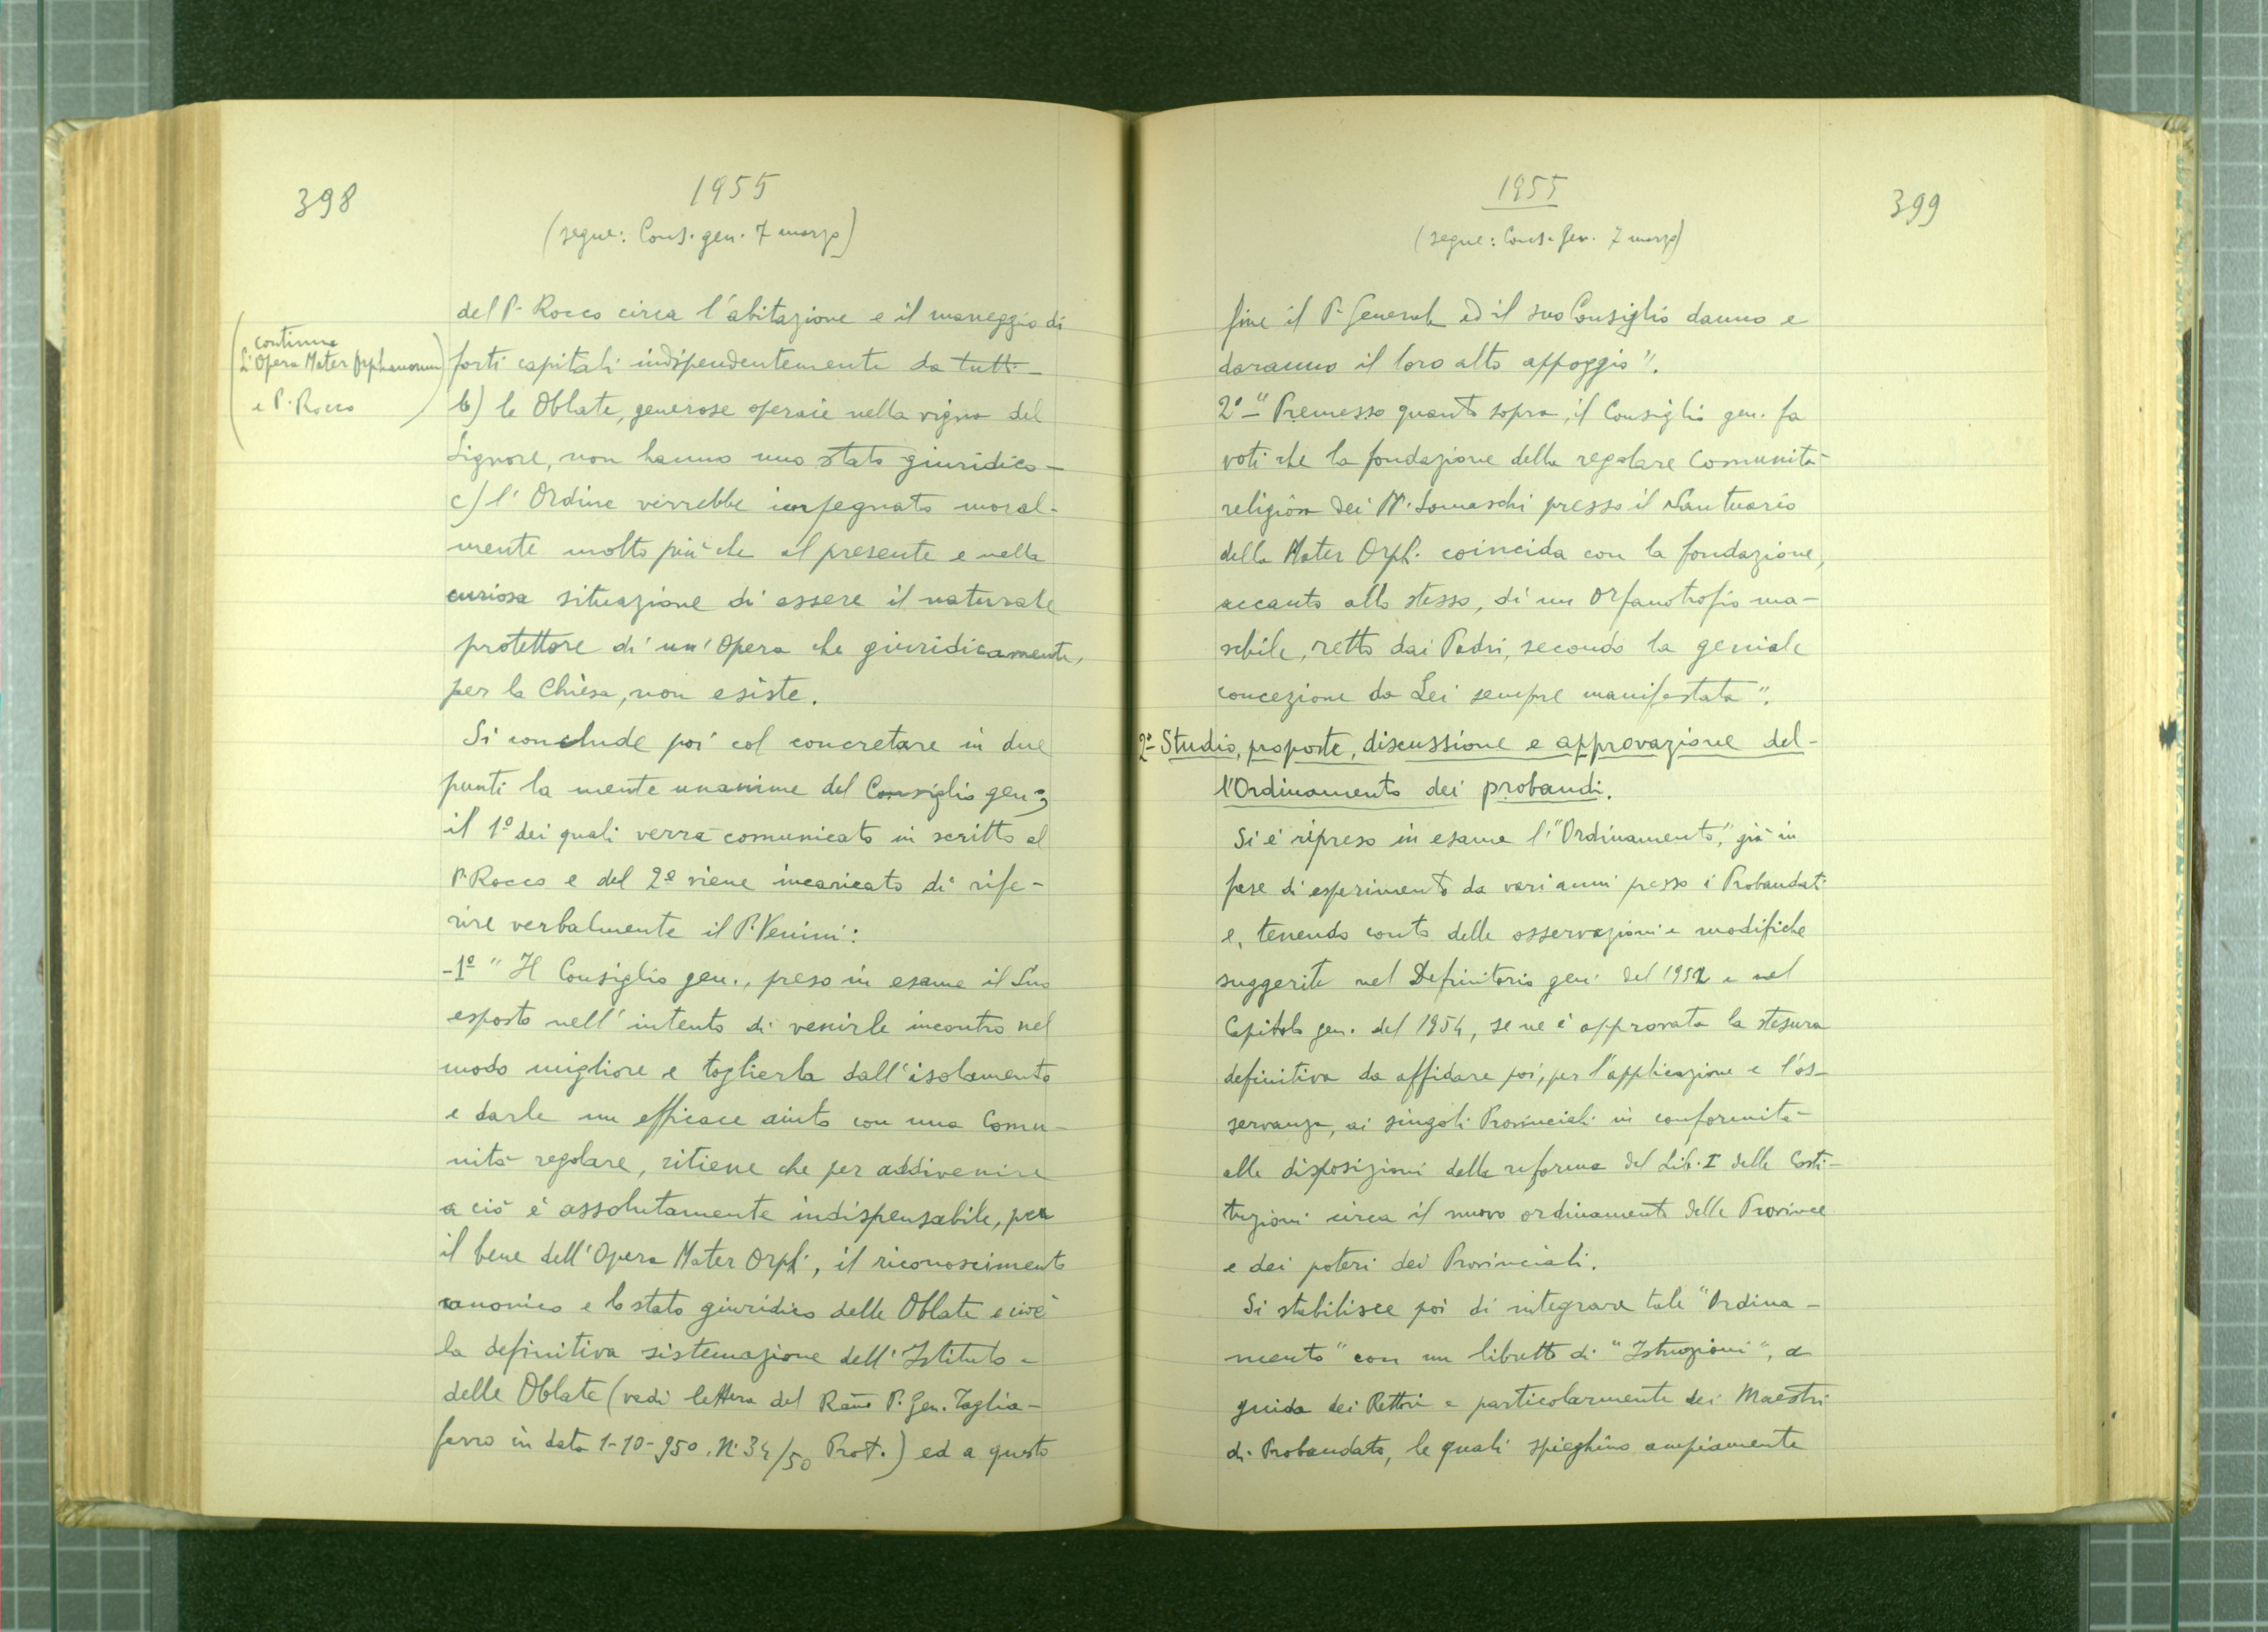 398
1955
(segue: Cons. gen. 7 marzo)
(continua
L'Opera Mater Orphanorum)
e P. Rocco
del P. Rocco circa l'abitazione e il maneggio di
forti capitali indipendentemente da tutti -
b) le Oblate, generose operaie nella vigna del
Signore, non hanno uno stato giuridico -
c) l'Ordine verrebbe impegnato moral-
mente molto più che al presente e nella
curiosa situazione di essere il naturale
protettore di un'Opera che giuridicamente,
per la Chiesa, non esiste.
Si conclude poi col concretare in due
punti la mente unanime del Consiglio gen.,
il 1º dei quali verrà comunicato in scritto al
P. Rocco e del 2º viene incaricato di rife-
rire verbalmente il P. Venini:
-1º "Il Consiglio gen., preso in esame il Suo
esposto nell'intento di venirle incontro nel
modo migliore e toglierla dall'isolamento
e darle un efficace aiuto con una Comu-
nità regolare, ritiene che per addivenire
a ciò è assolutamente indispensabile, per
il bene dell'Opera Mater Orph., il riconoscimento
canonico e lo stato giuridico delle Oblate e cioè
la definitiva sistemazione dell'Istituto -
delle Oblate (vedi lettera del Rmo P. Gen. Taglia-
ferro in data 1-10-950. N. 34/50 Prot.) ed a questo
1955
(segue: Cons. Gen. 7 marzo)
399
fine il P. Generale ed il suo Consiglio danno e
daranno il loro alto appoggio".
2º - "Premesso quanto sopra, il Consiglio gen. fa
voti che la fondazione della regolare Comunità
religiosa dei PP. Somaschi presso il Santuario
della Mater Orph. coincida con la fondazione,
accanto allo stesso, di un Orfanotrofio ma-
schile, retto dai Padri, secondo la geniale
concezione da Lei sempre manifestata".
2º- Studio, proposte, discussione e approvazione del-
l'Ordinamento dei probandi.
Si è ripreso in esame l'"Ordinamento", già in
fase di esperimento da vari anni presso i Probandati
e, tenendo conto delle osservazioni e modifiche
suggerite nel Definitorio gen. del 1952 e nel
Capitolo gen. del 1954, se ne è approvata la stesura
definitiva da affidare poi, per l'applicazione e l'os-
servanza, ai singoli Provinciali in conformità
alle disposizioni della riforma del Lib. I delle Costi-
tuzioni circa il nuovo ordinamento delle Province
e dei poteri dei Provinciali.
Si stabilisce poi di integrare tale "Ordina-
mento" con un libretto di "Istruzioni", a
guida dei Rettori e particolarmente dei Maestri
di Probandato, le quali spieghino ampiamente